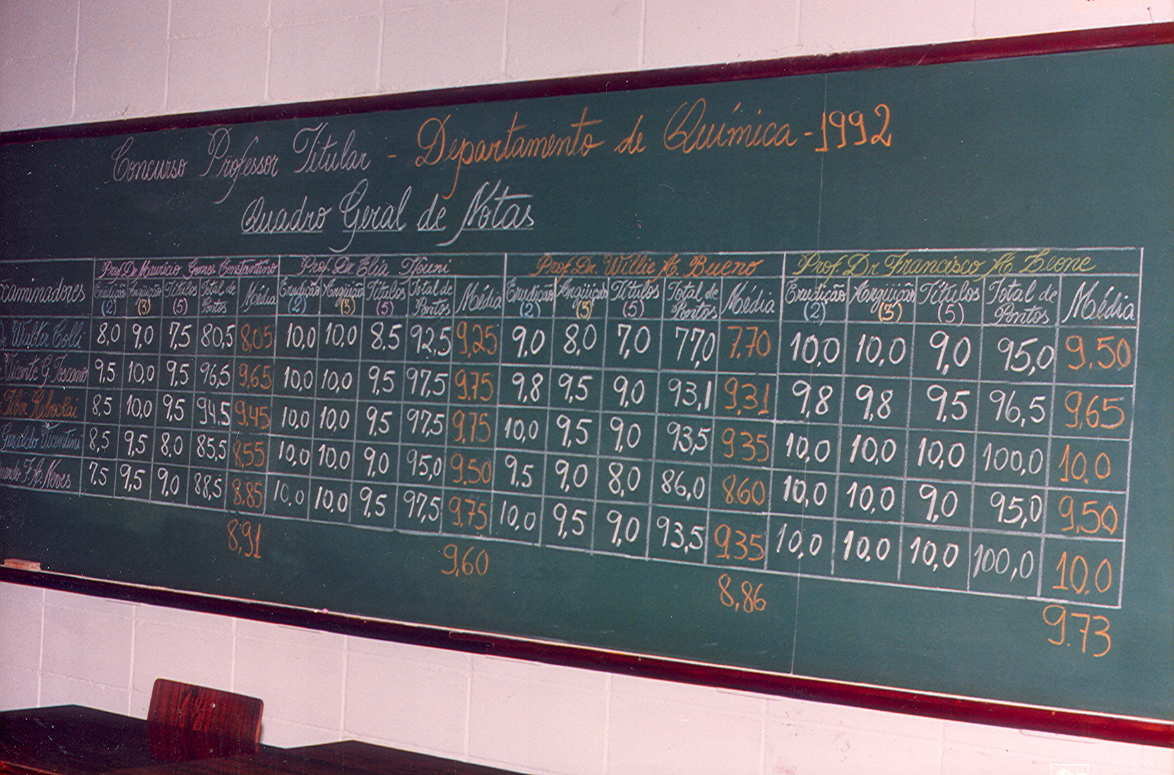 Concurso Professor Titular - Departamento de Química - 1992
Quadro Geral de Notas
Prof. Dr. Maurício Gomes Constantino Prof. Dr. Elia Tfouni Prof. Dr. Willie A. Bueno Prof. Dr. Francisco A. Leone
Examinadores Erudição (2) Arguição (3) Títulos (5) Total de Pontos Média Erudição (2) Arguição (3) Títulos (5) Total de Pontos Média Erudição (2) Arguição (3) Títulos (5) Total de Pontos Média Erudição (2) Arguição (3) Títulos (5) Total de Pontos Média
Walter Colli 8,0 9,0 7,5 80,5 8,05 10,0 10,0 8,5 92,5 9,25 9,0 8,0 7,0 77,0 7,70 10,0 10,0 9,0 95,0 9.50
Vicente G. Toscano 9,5 10,0 9,5 96,5 9,65 10,0 10,0 9,5 97,5 9,75 9,8 9,5 9,0 93,1 9,31 9,8 9,8 9,5 96,5 9,65
8,5 10,0 9,5 94,5 9,45 10,0 10,0 9,5 97,5 9,75 10,0 9,5 9,0 93,5 9,35 10,0 10,0 10,0 100,0 10.0
Geraldo Vicentini 8,5 9,5 8,0 85,5 8,55 10,0 10,0 9,0 95,0 9,50 9,5 9,0 8,0 86,0 8,60 10,0 10,0 9,0 95,0 9,50
Neves 7,5 9,5 9,0 88,5 8,85 10,0 10,0 9,5 97,5 9,75 10,0 9,5 9,0 93,5 9,35 10,0 10,0 10,0 100,0 10.0
8,91 9,60 8,86 9.73